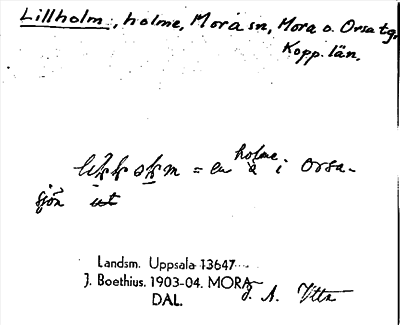 Lillholm, holme, Mora sn, Mora o. Orsa tg,
Kopp. län.
= en holme i Orsa-
sjön
Landsm. Uppsala 13647
J. Boethius. 1903-04. MORA
DAL.
J. A.